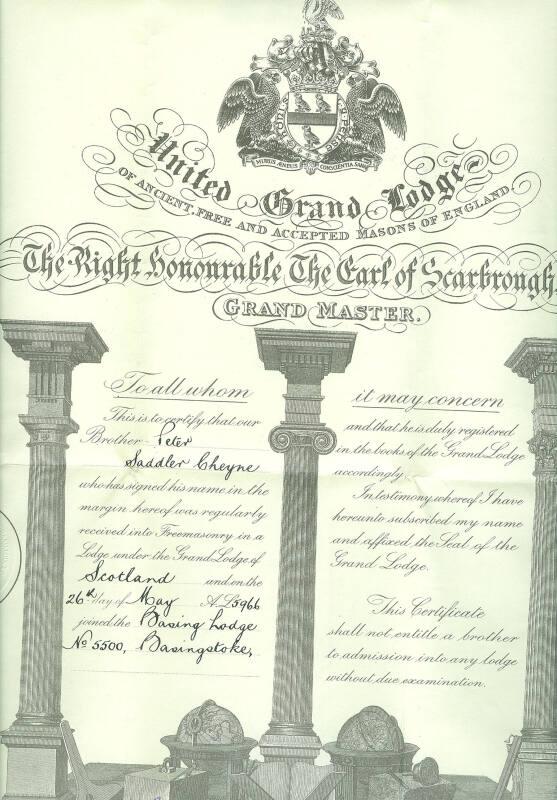 AUDI VIDE TACE
MURUS ÆNEUS CONSCIENTIA SANA
United Grand Lodge
OF ANCIENT, FREE AND ACCEPTED MASONS OF ENGLAND
The Right Honourable The Earl of Scarbrough.
GRAND MASTER.
To all whom
This is to certify that our
Brother Peter
Saddler Cheyne
who has signed his name in the
margin hereof was regularly
received into Freemasonry in a
Lodge under the Grand Lodge of
Scotland and on the
26th day of May A.L. 5966
joined the Basing Lodge
No 5500, Basingstoke,
it may concern
and that he is duly registered
in the books of the Grand Lodge
accordingly.
In testimony whereof I have
hereunto subscribed my name
and affixed the Seal of the
Grand Lodge.
This Certificate
shall not entitle a brother
to admission into any lodge
without due examination.